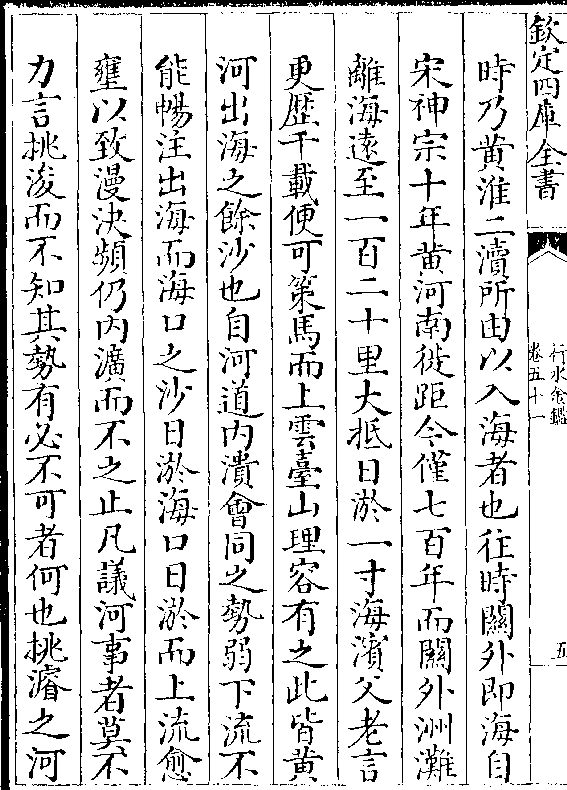 欽定四庫全書
行水金鑑
卷五十一
五
時乃黄淮二瀆所由以入海者也往時關外即海自
宋神宗十年黄河南徙距今僅七百年而關外洲灘
離海遠至一百二十里大抵日淤一寸海濵父老言
更歴千載便可策馬而上雲臺山理容有之此皆黄
河出海之餘沙也自河道内潰會同之勢弱下流不
能暢注出海而海口之沙日淤海口日淤而上流愈
壅以致漫決頻仍内灌而不之止凡議河事者莫不
力言挑浚而不知其勢有必不可者何也挑濬之河